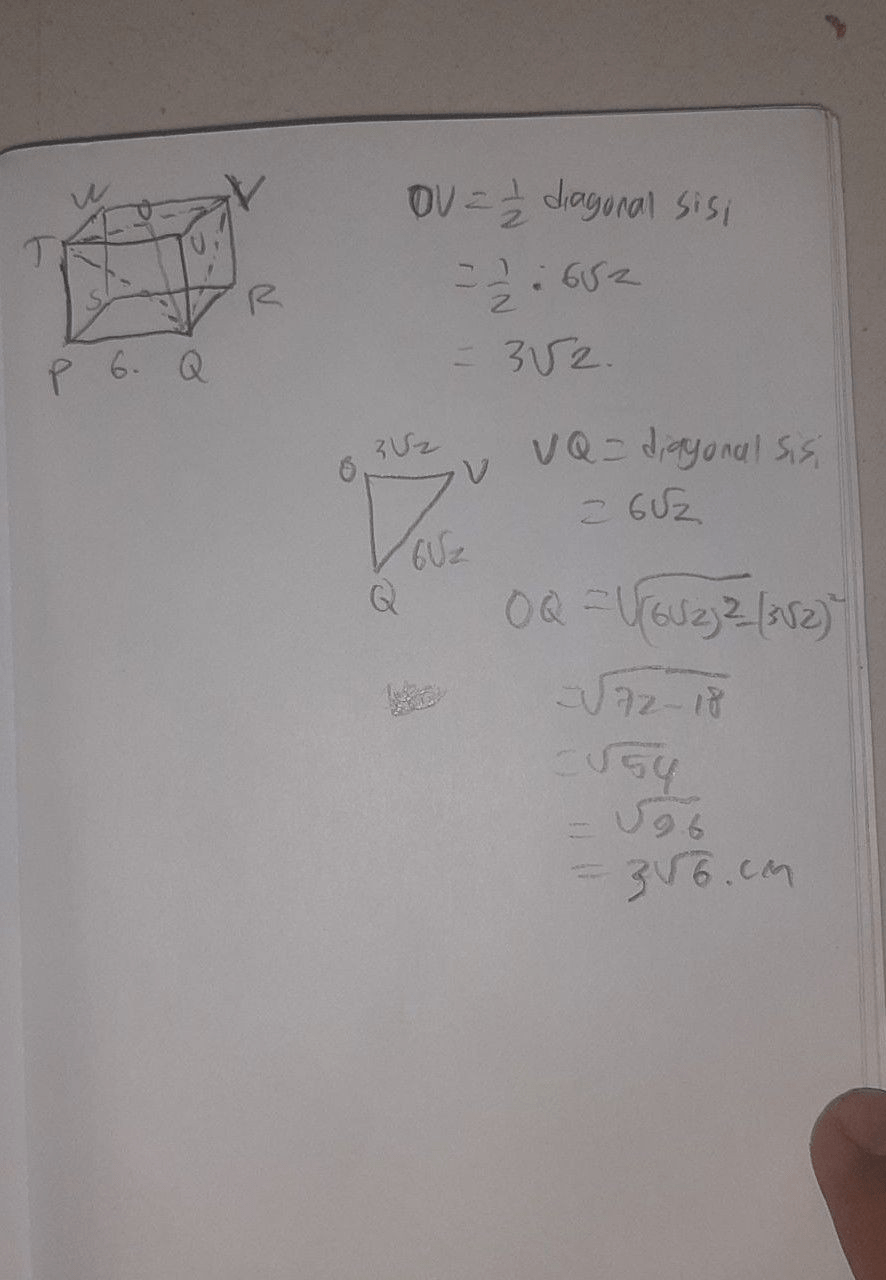 W V
O
T U
S R
P 6. Q
OV = 1/2 diagonal sisi
= 1/2 . 6√2
= 3√2.
O 3√2 V
6√2
Q
VQ = diagonal sisi
= 6√2
OQ = √(6√2)² - (3√2)²
= √72 - 18
= √54
= √9.6
= 3√6 . cm